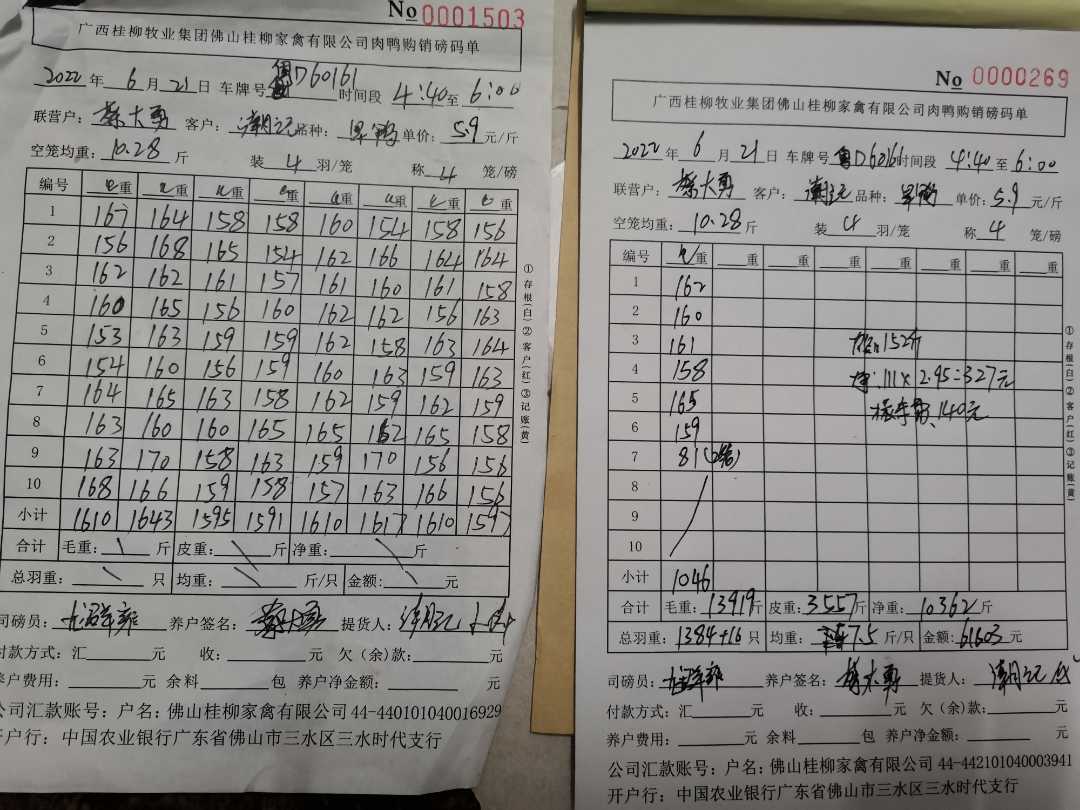 No 0001503
广西桂柳牧业集团佛山桂柳家禽有限公司肉鸭购销磅码单
2022年 6月21日 车牌号 粤D60161 时间段 4:40至 6:00
联营户: 大勇 客户: 品种: 单价: 5.9元/斤
空笼均重: 10.28斤 装 4 羽/笼 称 4 笼/磅
编号 毛重 毛重 毛重 毛重 毛重 毛重 毛重 毛重
1 167 164 158 158 160 154 158 156
2 156 168 165 154 162 166 164 164
3 162 162 161 157 161 160 161 158
4 160 165 156 160 162 162 156 163
5 153 163 159 159 162 158 163 164
6 154 160 156 159 160 163 159 163
7 164 165 163 158 162 159 162 159
8 163 160 160 165 165 162 165 158
9 163 170 158 163 159 170 156 156
10 168 166 159 158 157 163 166 156
小计 1610 1643 1595 1591 1610 1617 1610 1597
合计 毛重: 斤 皮重: 斤 净重: 斤
总羽重: 只 均重: 斤/只 金额: 元
司磅员: 养户签名: 提货人:
付款方式: 汇 元 收: 元 欠（余）款: 元
养户费用: 元 余料 包 养户净金额: 元
公司汇款账号: 户名: 佛山桂柳家禽有限公司 44-440101040016929
开户行: 中国农业银行广东省佛山市三水区三水时代支行
①存根(白)②客户(红)③记账(黄)
No 0000269
广西桂柳牧业集团佛山桂柳家禽有限公司肉鸭购销磅码单
2022年 6月21日 车牌号 粤D60161 时间段 4:40至 6:00
联营户: 大勇 客户: 品种: 单价: 5.9元/斤
空笼均重: 10.28斤 装 4 羽/笼 称 4 笼/磅
编号 毛重 重 重 重 重 重 重 重
1 162
2 160
3 161 152斤
4 158 111×2.95=327元
5 165 140元
6 159
7 81
8
9
10
小计 1046
合计 毛重: 13919斤 皮重: 3557斤 净重: 10362斤
总羽重: 1384+16只 均重: 7.5斤/只 金额: 61603元
司磅员: 养户签名: 大勇 提货人:
付款方式: 汇 元 收: 元 欠（余）款: 元
养户费用: 元 余料 包 养户净金额: 元
公司汇款账号: 户名: 佛山桂柳家禽有限公司 44-442101040003941
开户行: 中国农业银行广东省佛山市三水区三水时代支行
①存根(白)②客户(红)③记账(黄)